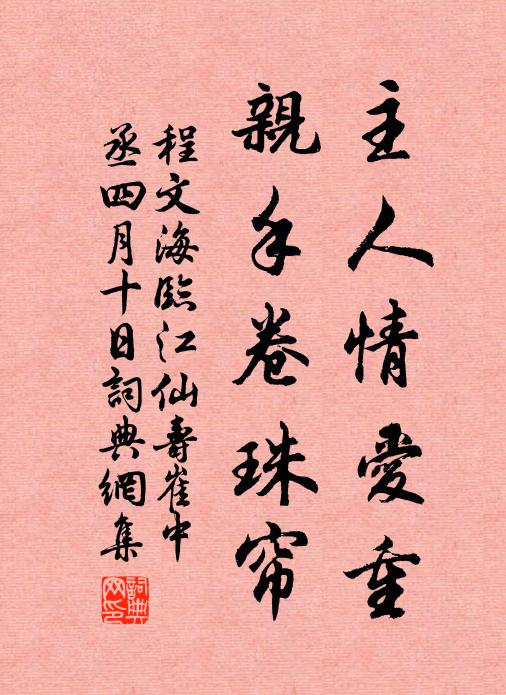 主人情愛重
親手卷珠帘
程文海臨江仙壽崔中
丞四月十日詞典網集
詞典網印